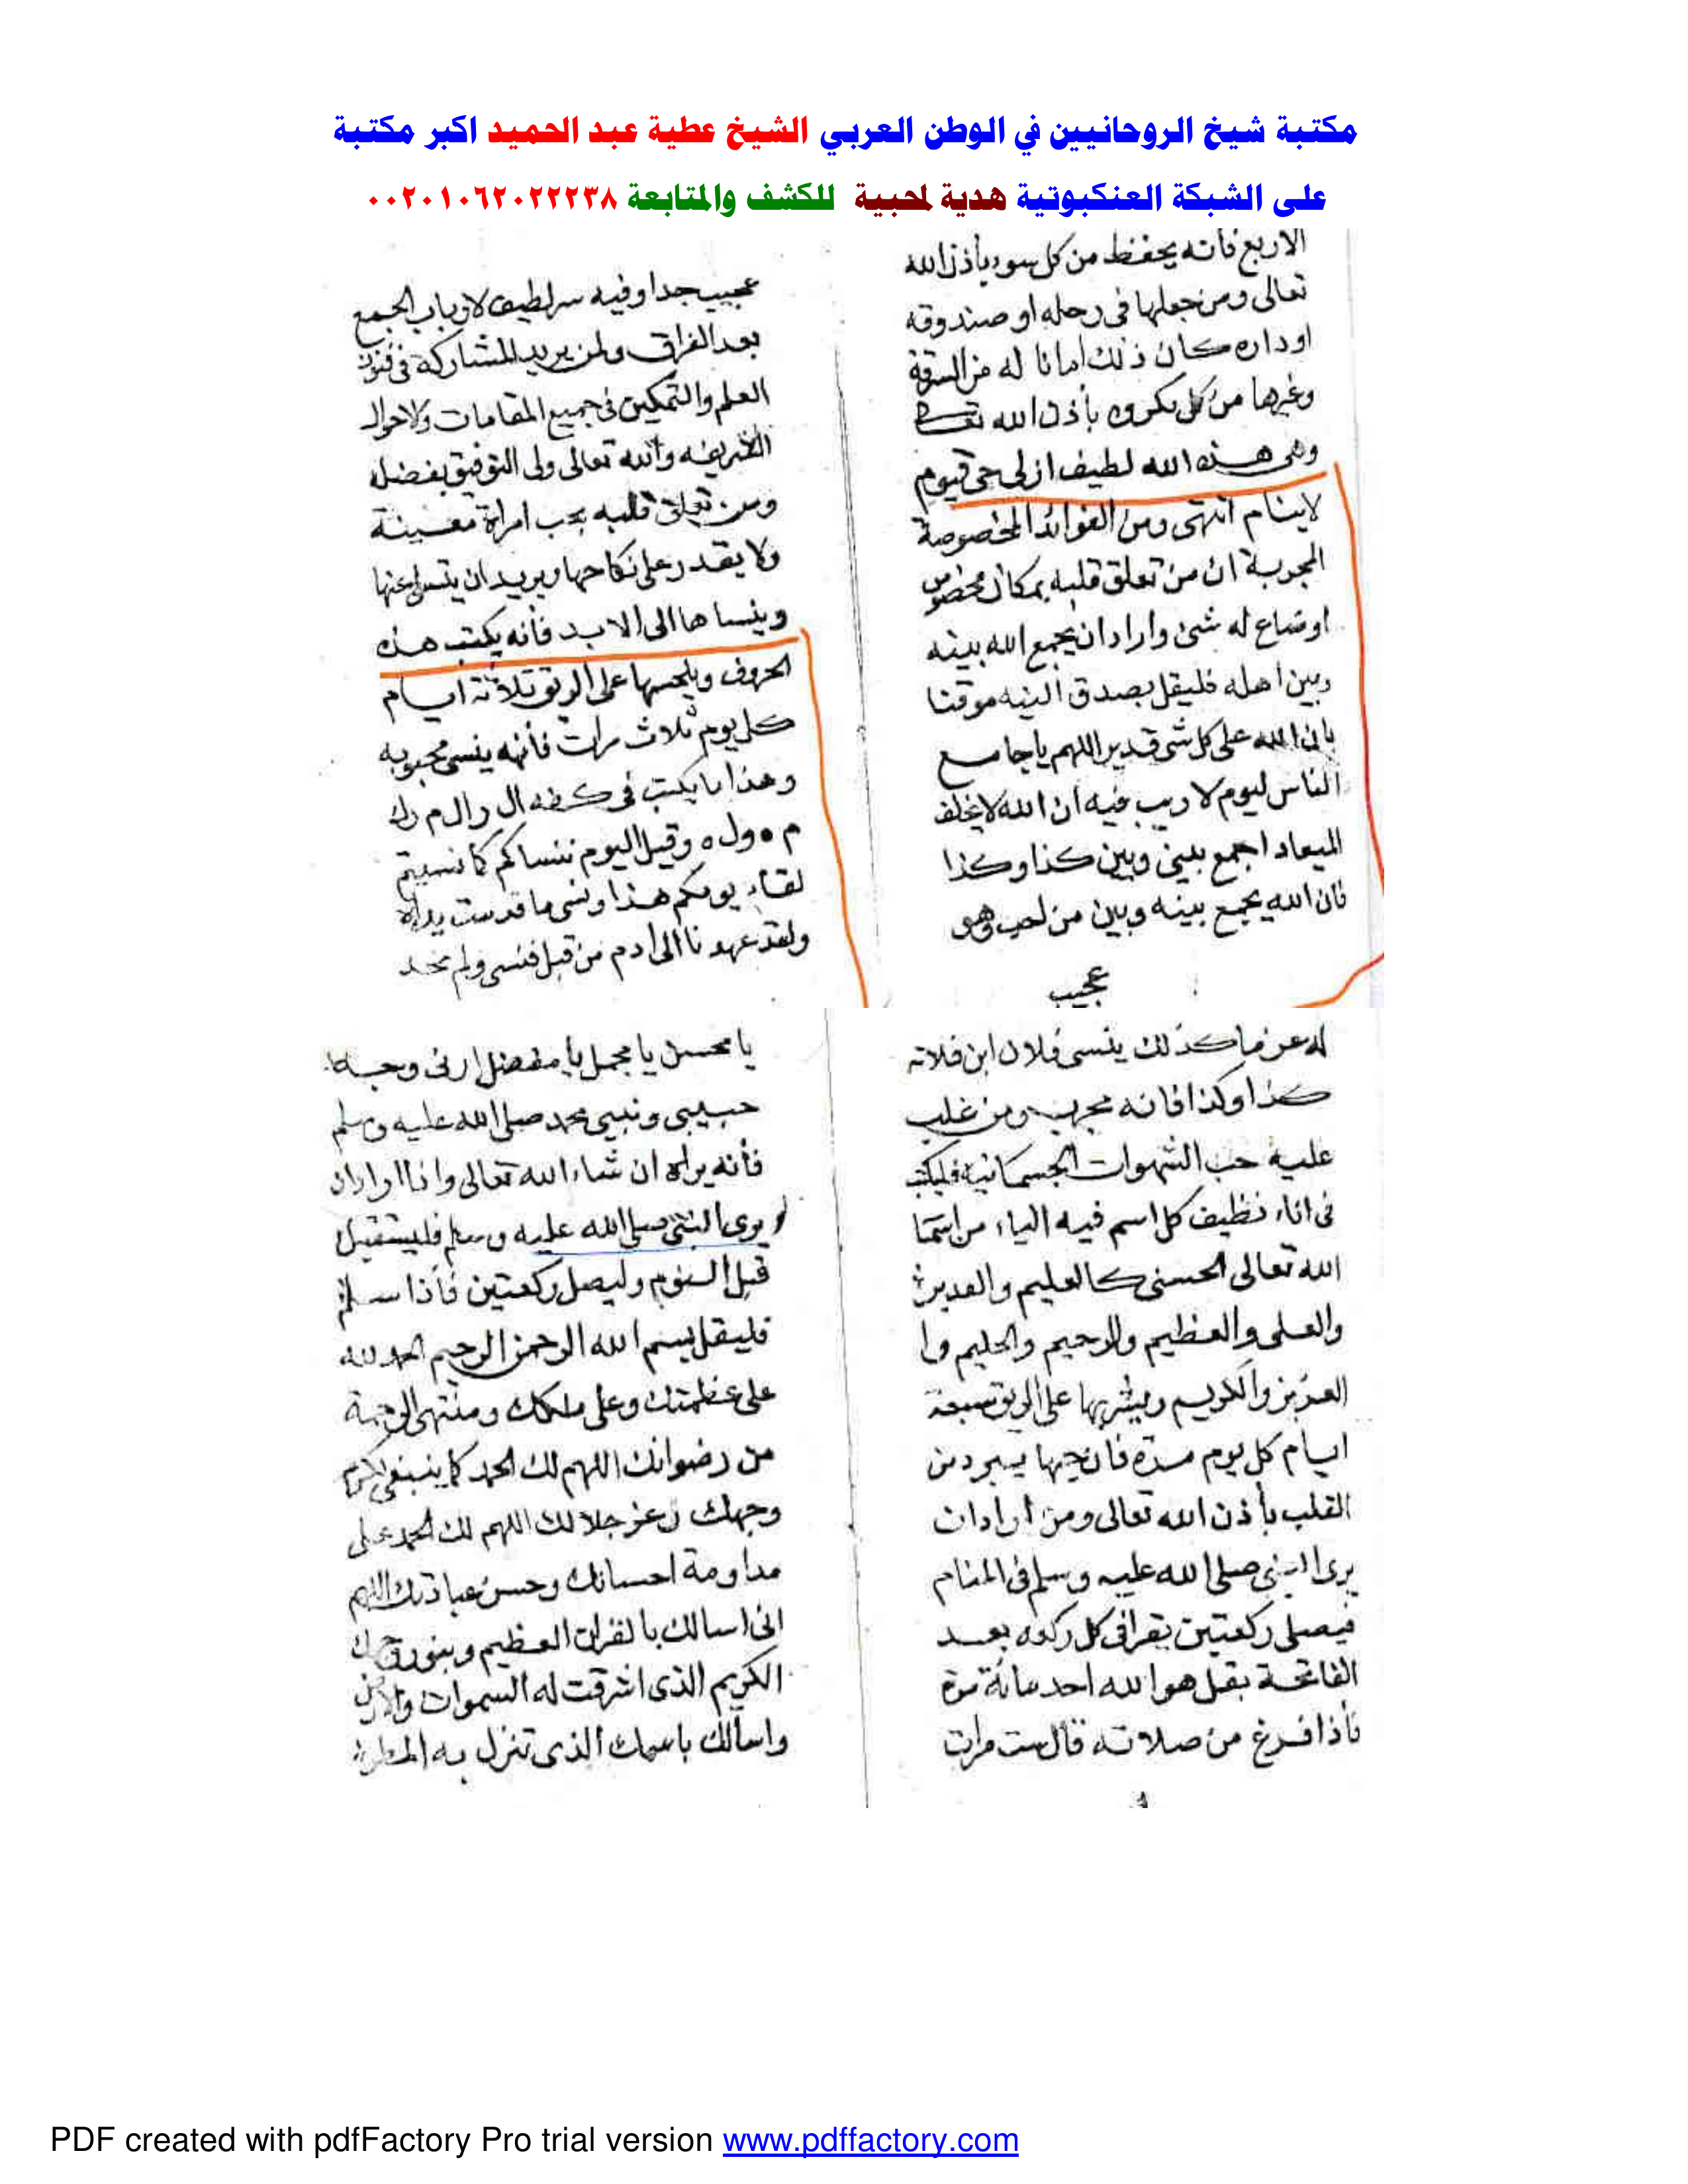 مكتبة شيخ الروحانيين في الوطن العربي الشيخ عطية عبد الحميد اكبر مكتبة
على الشبكة العنكبوتية هدية لمحبية للكشف والمتابعة ٠٠٢٠١٠٦٢٠٢٢٢٣٨
الاربع فانه يحفظ من كل سوء بأذن الله
تعالى ومن جعلها فى رحله او صندوقه
او داره كان ذلك امانا له من السرقة
وغيرها من كل مكروه بأذن الله تعالى
وهى هذه الله لطيف ازلى حى قيوم
لاينام انتهى ومن الفوائد المخصوصة
المجربة ان من تعلق قلبه بمكان مخصوص
او ضاع له شئ واراد ان يجمع الله بينه
وبين اهله فليقل بصدق النيه موقنا
بان الله على كل شى قدير اللهم ياجامع
الناس ليوم لا ريب فيه ان الله لا يخلف
الميعاد اجمع بينى وبين كذا وكذا
فان الله يجمع بينه وبين من احب وهى
عجيب
عجيب جدا وفيه سر لطيف لارباب الجمع
بعد الفراق ولمن يريد المشاركة فى فنون
العلم والتمكين فى جميع المقامات ولاحوال
الشريفه والله تعالى ولى التوفيق بفضله
ومن تعلق قلبه بحب امراة معينة
ولا يقدر على نكاحها ويريد ان يتسلى عنها
وينساها الى الابد فأنه يكتب هذه
الحروف ويلحسها على الريق ثلاثة ايام
كل يوم ثلاث مرات فأنه ينسى محبوبه
وهذا ما يكتب فى كفه ال ر ال م رك
م ه ول ه وقيل اليوم ننساكم كما نسيتم
لقاء يومكم هذا ونسى ما قدمت يداه
ولقد عهدنا الى ادم من قبل فنسى ولم نجد
له عزما كذلك ينسى فلان ابن فلانه
كذا وكذا فانه مجرب ومن غلب
عليه حب الشهوات الجسمانيه فليكتب
فى اناء نظيف كل اسم فيه الياء من اسما
الله تعالى الحسنى كالعليم والقدير
والعلى والعظيم والرحيم والحليم وا
العزيز والكريم ويشربها على الريق سبعة
ايام كل يوم مرة فان حبها يبرد من
القلب بأذن الله تعالى ومن ارادان
يرى النبى صلى الله عليه وسلم فى المنام
فيصلى ركعتين يقرافى كل ركعه بعد
الفاتحة بقل هو الله احد مائة مرة
فأذا فرغ من صلاته قال ست مرات
يا محسن يا مجمل يا مفضل ارنى وجه
حبيبى ونبيى محمد صلى الله عليه وسلم
فأنه يراه ان شاء الله تعالى واذا ارادان
يرى النبى صلى الله عليه وسلم فليستقيل
قبل النوم وليصل ركعتين فأذا سلم
فليقل بسم الله الرحمن الرحيم الحمد لله
على عظمتك وعلى ملكك ومنتهى الرحمة
من رضوانك اللهم لك الحمد كما ينبغى لكرم
وجهك وعز جلالك اللهم لك الحمد على
مداومة احسانك وحسن عبادتك اللهم
انى اسالك بالقران العظيم وبنور وجهك
الكريم الذى اشرقت له السموات والارض
واسألك باسمك الذى تنزل به المطر
PDF created with pdfFactory Pro trial version www.pdffactory.com